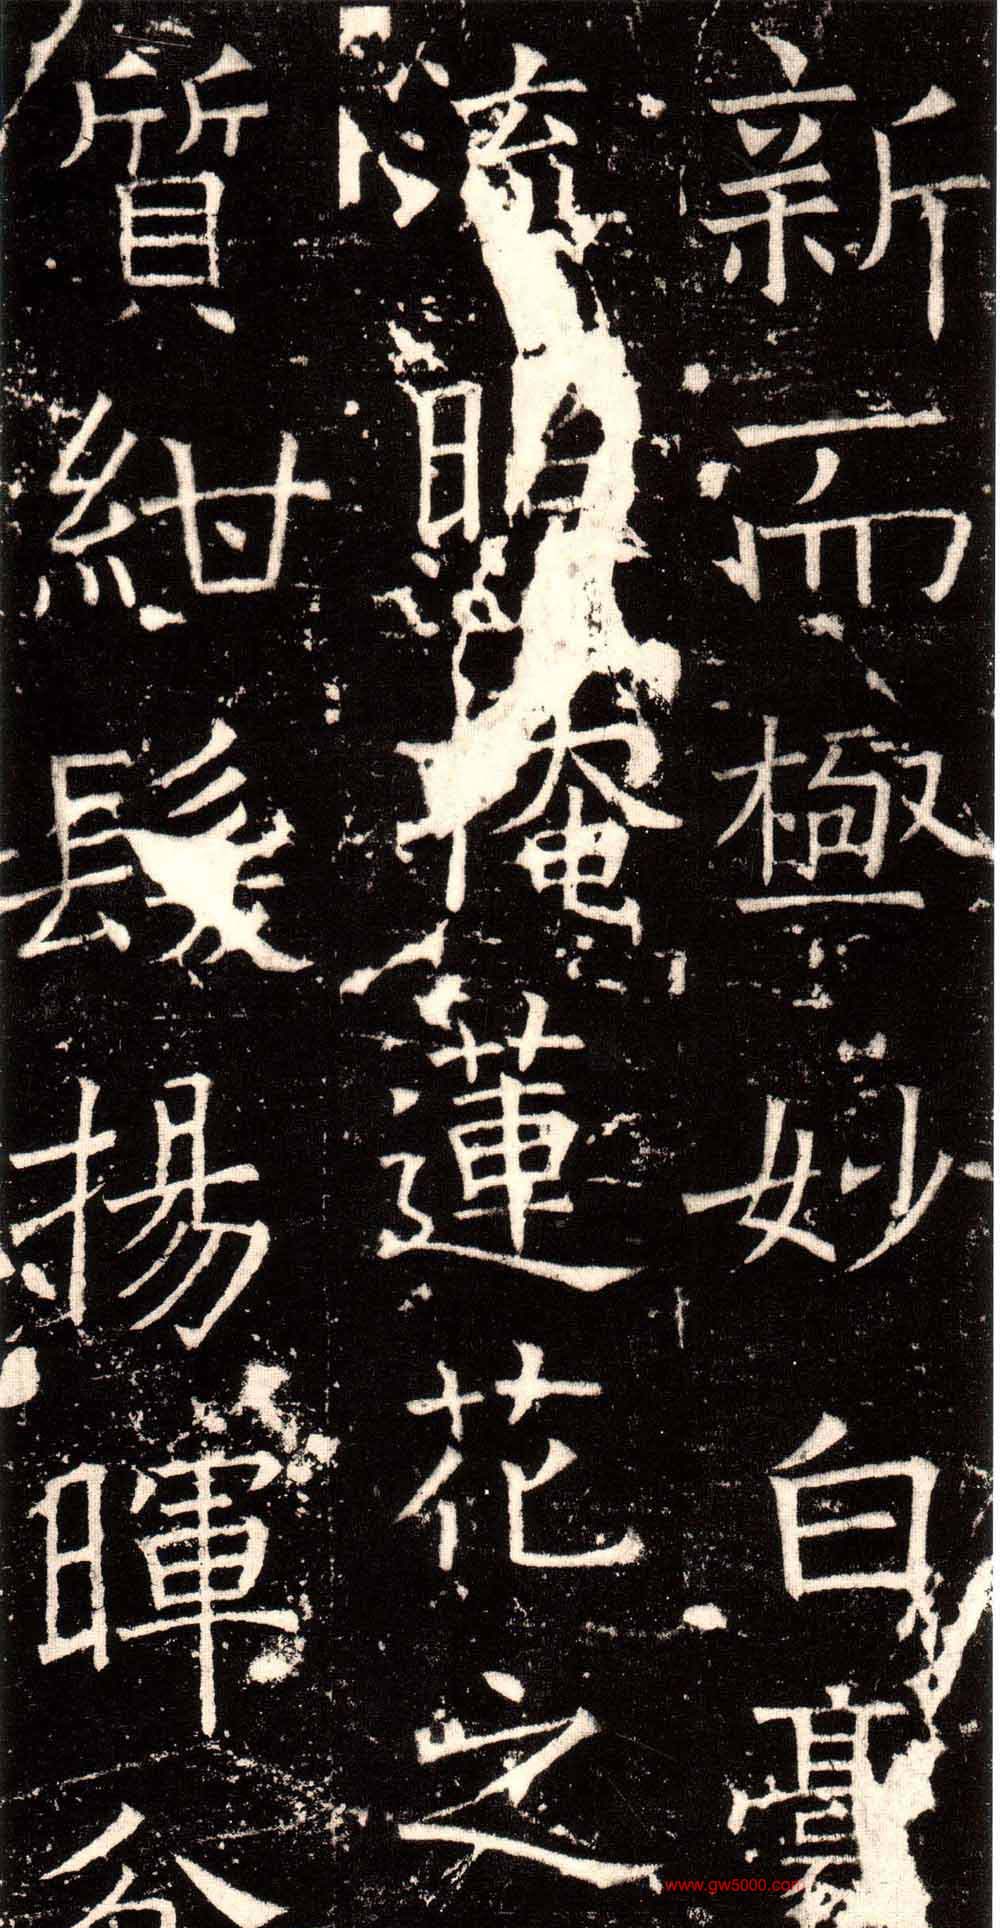 新而極妙白毫
流照掩蓮花之
質紺髮揚暉分
www.gw5000.com